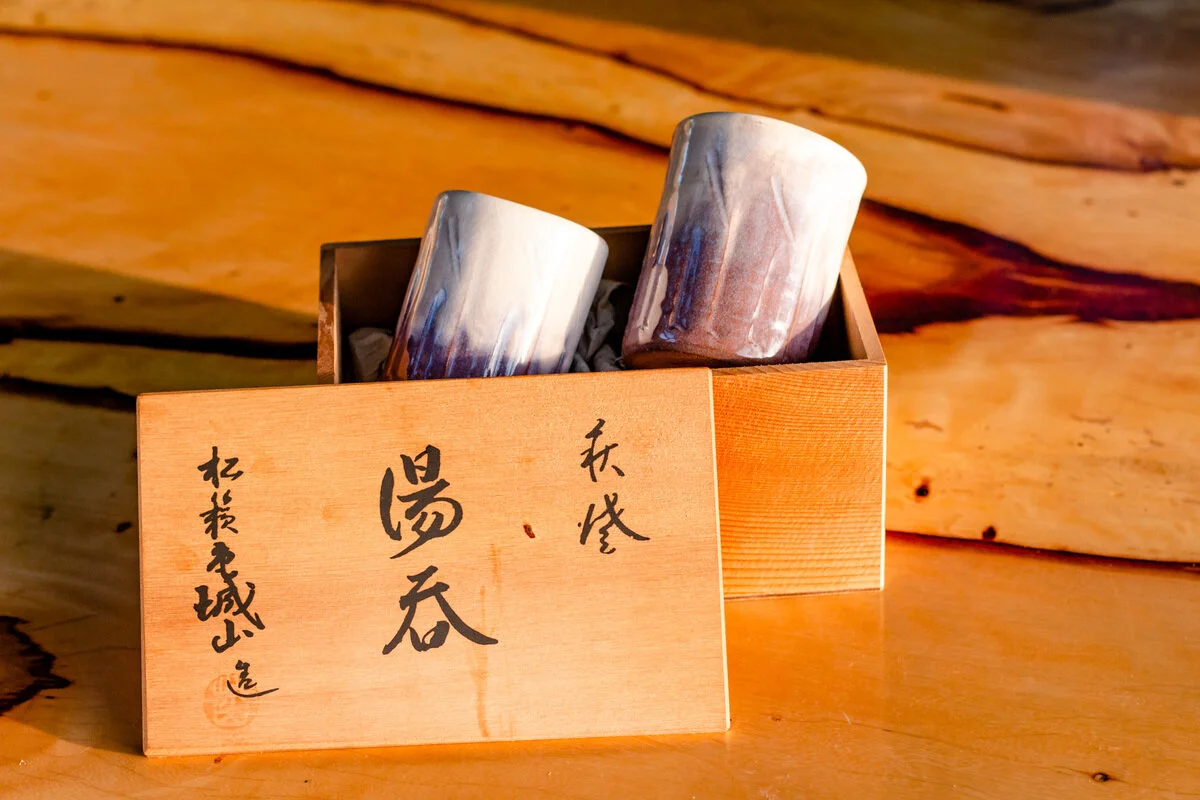 萩焼
湯呑
松 城山 造